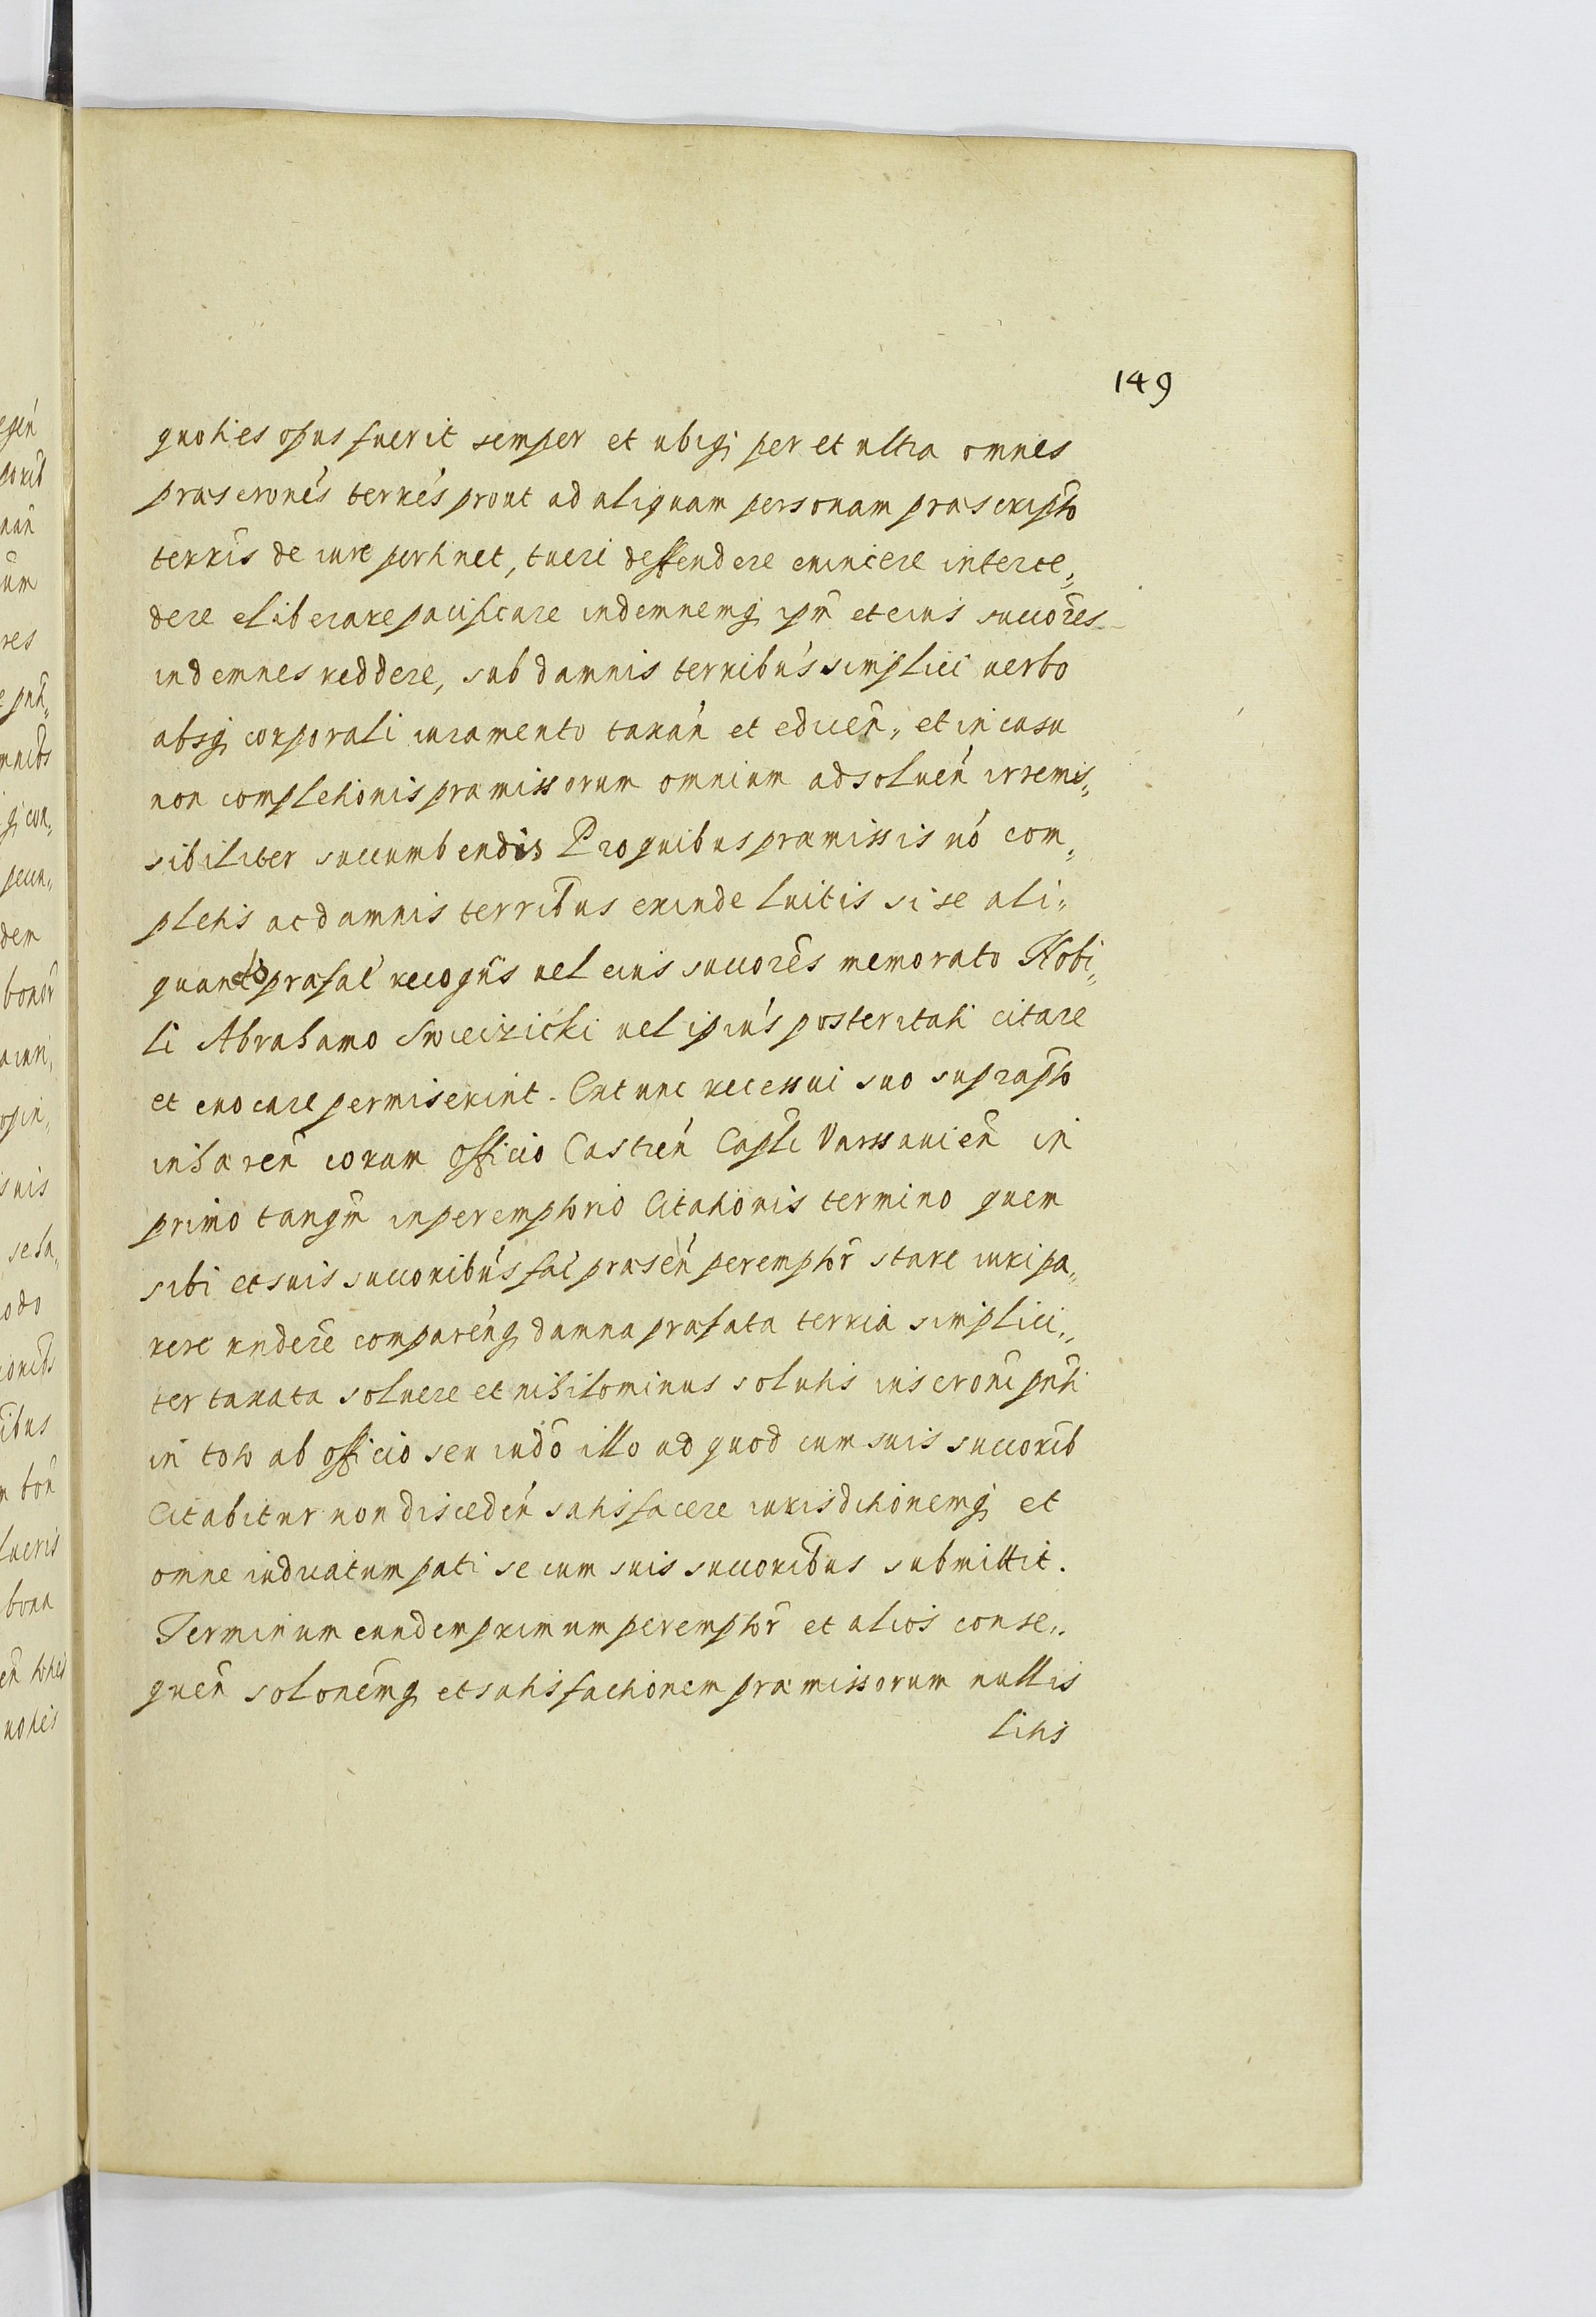 149
quoties opus fuerit semper et ubiq; per et ultra omnes
præscronẽs terrẽs prout ad aliquam personam præscripto
terris de iure pertinet, tueri deffendere evincere interce„
dere eliberare pacificare indemnemq; ipm̃ et eius succorẽs
indemnes reddere, sub damnis terribus simplici verbo
absq; corporali iuramento taxañ et educeñ, et in casu
non completionis præmissorum omnium adsolueñ irremis„
sibiliter succumbendis Pro quibus præmissis nõ com„
pletis ac damnis terribus exinde luitis si se ali„
quando præfať recogñs vel eius succorẽs memorato Nobi„
li Abrahamo Swiecizicki vel ipius posteritati citare
et evocare permiserint. Ex tunc recessui suo suprapto
inhæreñ coram officio Castreñ Capli Varssavieñ in
primo tanqm̃ in peremptorio Citationis termino quem
sibi et suis succoribus fať præseñ peremptor̃ stare iuri pa„
rere rndere compareñq; damna præfata terria simplici„
ter taxata solvere et nihilominus solutis inscroni pnti
in toto ab officio seu iudo illo ad quod cum suis succorib
Citabitur non discedeñ satisfacere iurisditionemq; et
omne iudicatum pati se cum suis succoribus submittit.
Terminum eundem primum peremptor̃ et alios conse„
queñ solonemq; et satisfactionem præmissorum nullis
litis